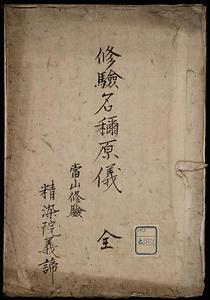 修驗名稱原儀 全
當山修驗
精染院義諦